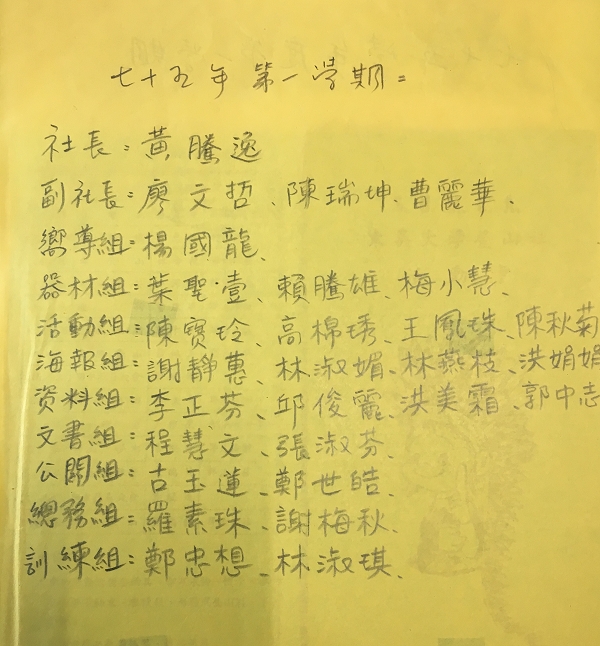 七十五年第一學期:
社長:黃騰逸
副社長:廖文哲、陳瑞坤、曹麗華、
嚮導組:楊國龍、
器材組:葉聖壹、賴騰雄、梅小慧、
活動組:陳寶玲、高棉琇、王鳳珠、陳秋菊
海報組:謝靜惠、林淑媚、林燕枝、洪娟娟
資料組:李正芬、邱俊麗、洪美霜、郭中志
文書組:程慧文、張淑芬、
公關組:古玉蓮、鄭世皓、
總務組:羅素珠、謝梅秋、
訓練組:鄭忠想、林淑琪、